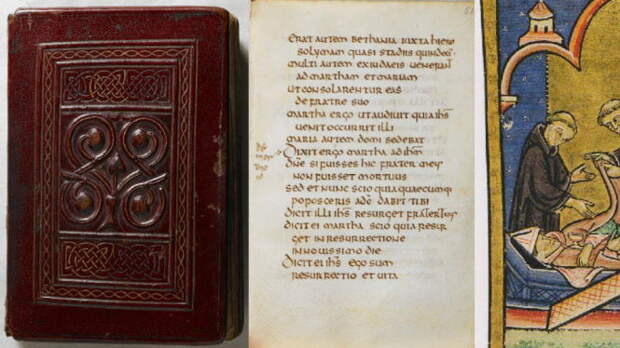 51
erat autem bethania iuxta hiero
solymam quasi stadiis quindeci
multi autem ex iudaeis uenerant
ad martham et mariam
ut consolarentur eas
de fratre suo
martha ergo ut audiuit quia ihs
uenit occurrit illi
maria autem domi sedebat
Dixit ergo martha ad ihm
dne si fuisses hic frater meus
non fuisset mortuus
sed et nunc scio quia quaecumq
poposceris a do dabit tibi
dicit illi ihs resurget frater tuus
dicit ei martha scio quia resur
get in resurrectione
in nouissimo die
Dicit ei ihs ego sum
resurrectio et uita